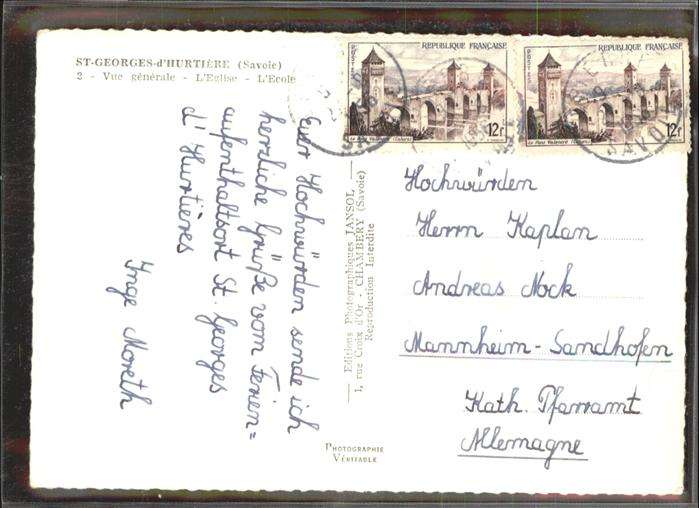 ST-GEORGES-d'HURTIÈRE (Savoie)
2 - Vue générale - L'Eglise - L'Ecole
POSTES
REPUBLIQUE FRANÇAISE
12f
Le Pont Valentré (Cahors)
POSTES
REPUBLIQUE FRANÇAISE
12f
Le Pont Valentré (Cahors)
Euer Hochwürden sende ich
herzliche Grüße vom Ferien=
aufenthaltsort St. Georges
d' Hurtières
Inge Moreth
Editions Photographiques JANSOL
1, rue Croix d'Or - CHAMBERY (Savoie)
Reproduction Interdite
PHOTOGRAPHIE
VÉRITABLE
Hochwürden
Herrn Kaplan
Andreas Nock
Mannheim-Sandhofen
Kath. Pfarramt
Allemagne